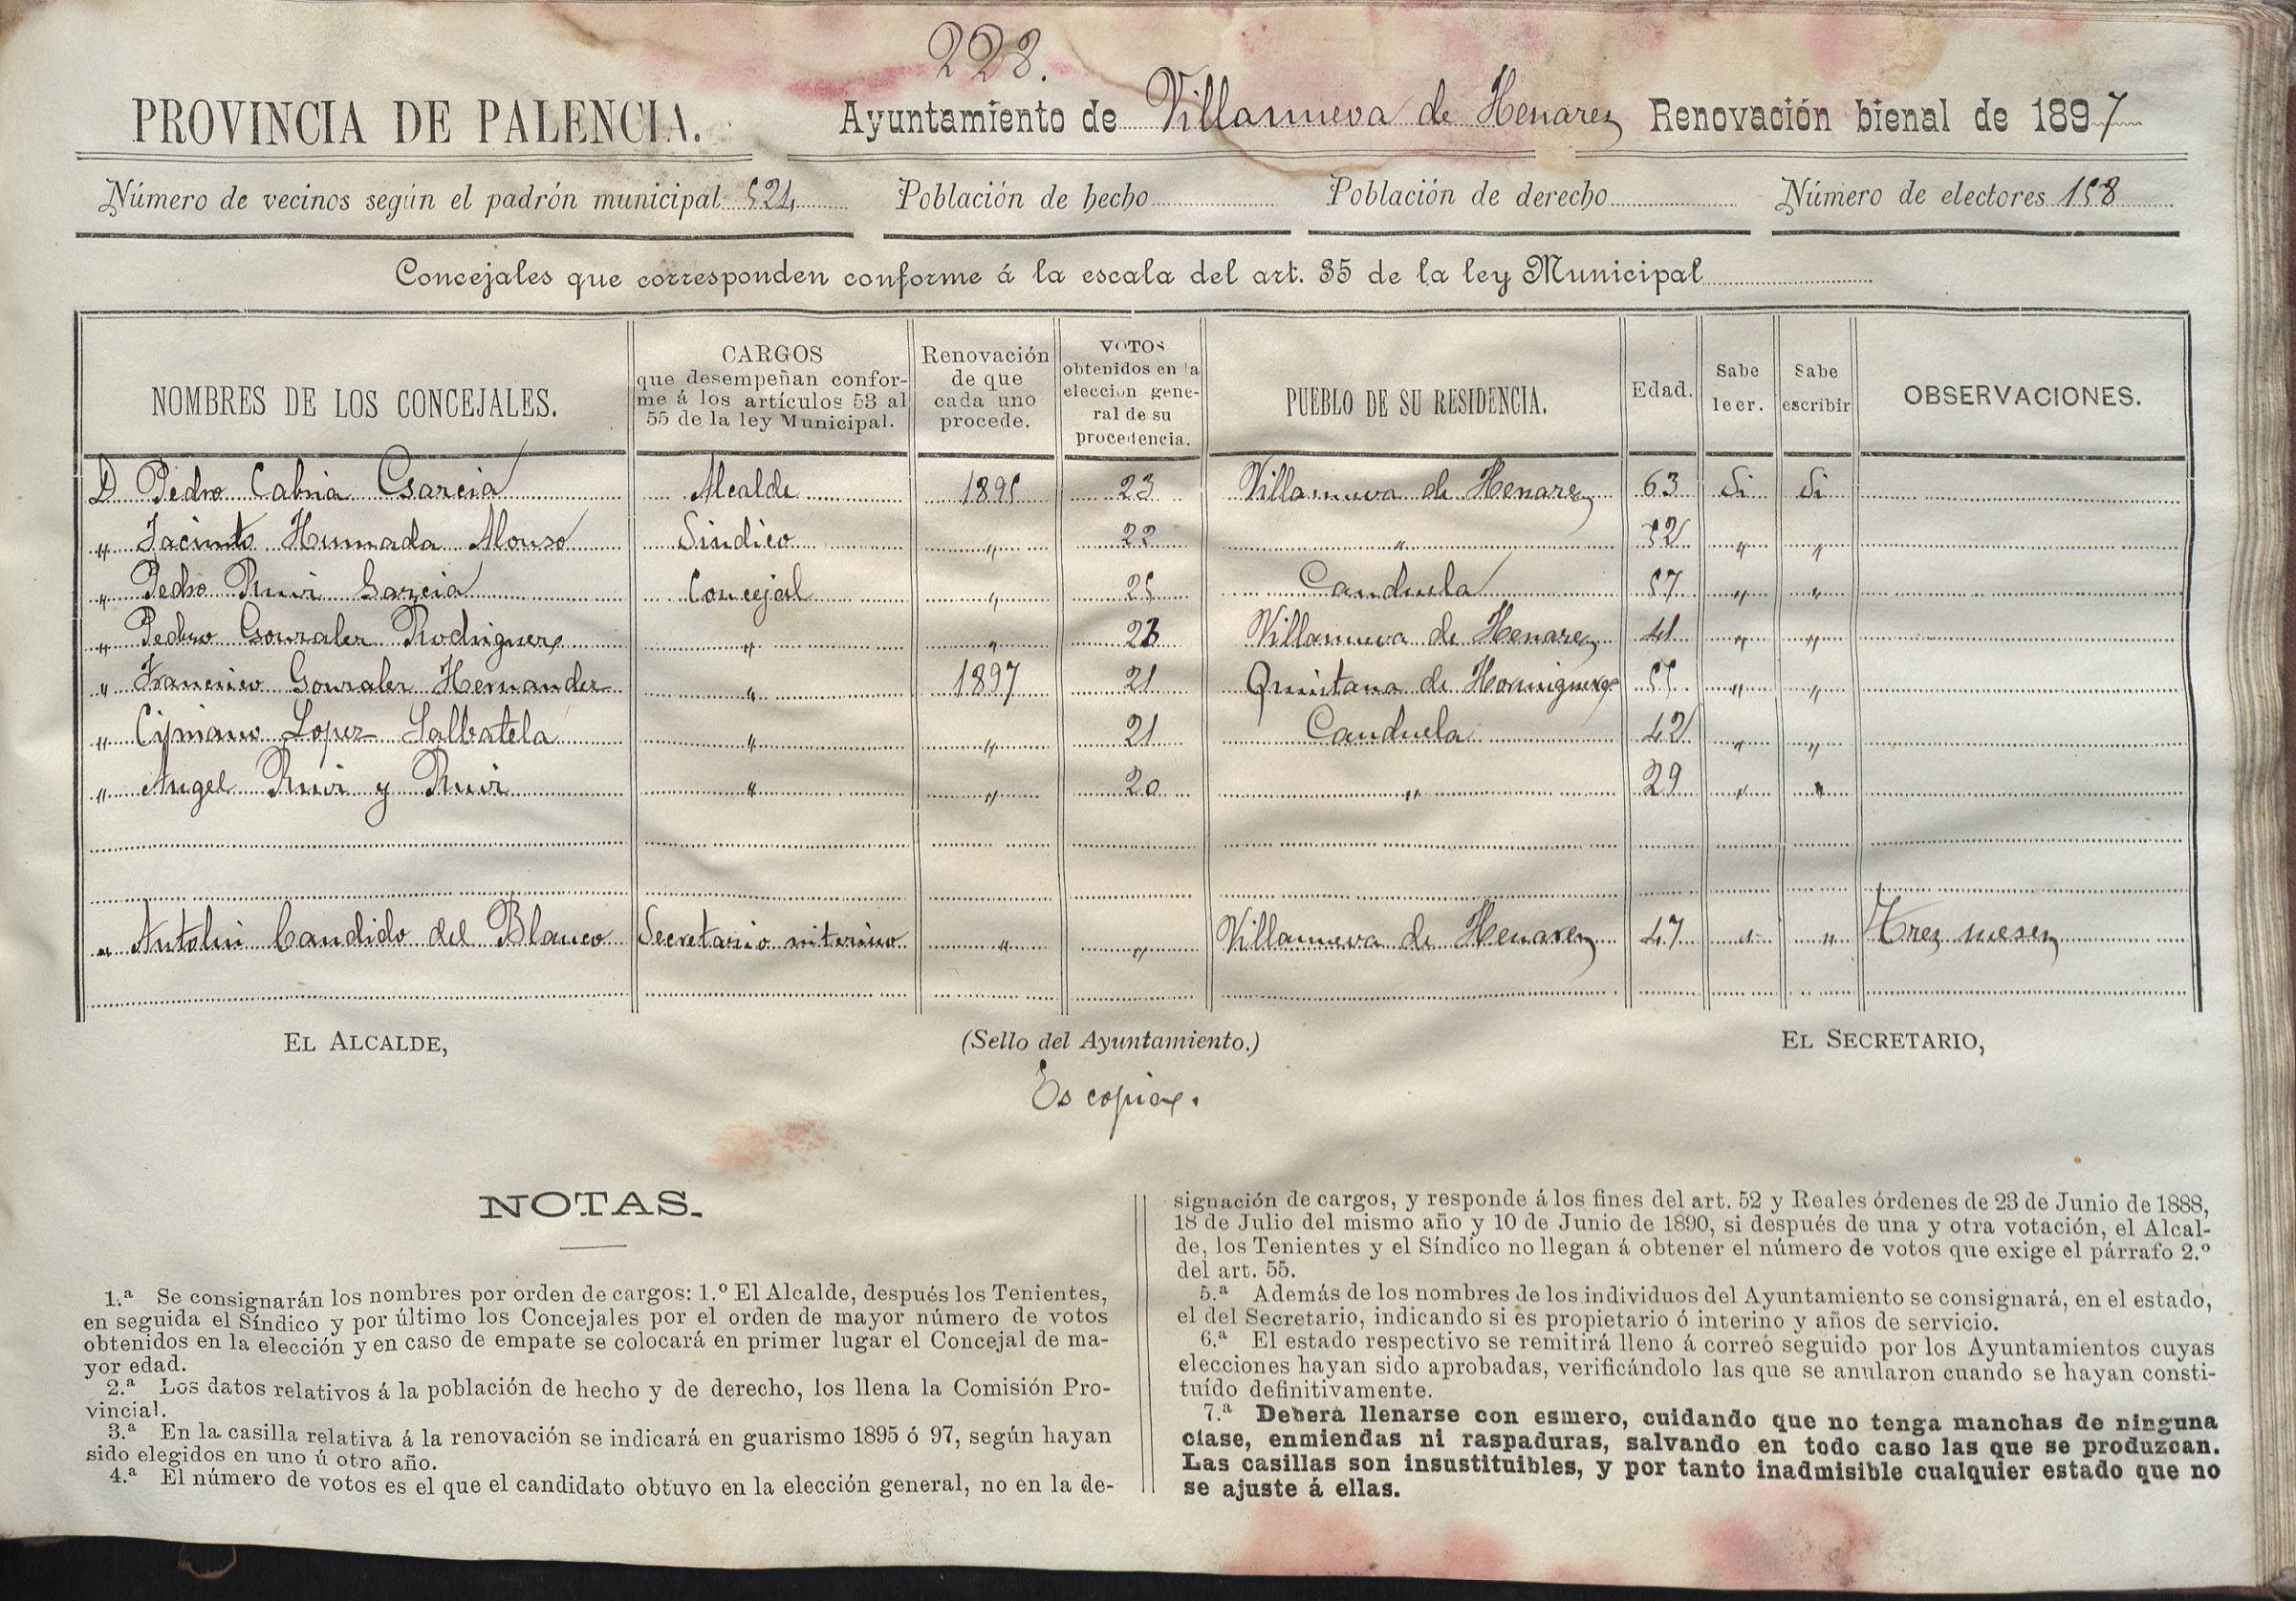 228.
PROVINCIA DE PALENCIA. Ayuntamiento de Villanueva de Henares Renovación bienal de 1897
Número de vecinos según el padrón municipal 524 Población de hecho Población de derecho Número de electores 158
Concejales que corresponden conforme á la escala del art. 35 de la ley Municipal
NOMBRES DE LOS CONCEJALES. CARGOS que desempeñan conforme á los artículos 53 al 55 de la ley Municipal. Renovación de que cada uno procede. VOTOS obtenidos en la elección general de su procedencia. PUEBLO DE SU RESIDENCIA. Edad. Sabe leer. Sabe escribir OBSERVACIONES.
D Pedro Cabria Garcia Alcalde 1895 23 Villanueva de Henares 63 Si Si
" Jacinto Humada Alonso Sindico " 22 " 52 " "
" Pedro Ruiz Garcia Concejal " 25 Canduela 57 " "
" Pedro Gonzalez Rodriguez " " 23 Villanueva de Henares 41 " "
" Francisco Gonzalez Hernandez " 1897 21 Quintana de Hormiguera 55 " "
" Cipriano Lopez Salbatela " " 21 Canduela 42 " "
" Angel Ruiz y Ruiz " " 20 " 29 " "
" Antolin Candido del Blanco Secretario interino " " Villanueva de Henares 47 " " Tres meses
EL ALCALDE, (Sello del Ayuntamiento.) EL SECRETARIO,
Es copia.
NOTAS.
1.ª Se consignarán los nombres por orden de cargos: 1.º El Alcalde, después los Tenientes,
en seguida el Síndico y por último los Concejales por el orden de mayor número de votos
obtenidos en la elección y en caso de empate se colocará en primer lugar el Concejal de ma-
yor edad.
2.ª Los datos relativos á la población de hecho y de derecho, los llena la Comisión Pro-
vincial.
3.ª En la casilla relativa á la renovación se indicará en guarismo 1895 ó 97, según hayan
sido elegidos en uno ú otro año.
4.ª El número de votos es el que el candidato obtuvo en la elección general, no en la de-
signación de cargos, y responde á los fines del art. 52 y Reales órdenes de 23 de Junio de 1888,
18 de Julio del mismo año y 10 de Junio de 1890, si después de una y otra votación, el Alcal-
de, los Tenientes y el Síndico no llegan á obtener el número de votos que exige el párrafo 2.º
del art. 55.
5.ª Además de los nombres de los individuos del Ayuntamiento se consignará, en el estado,
el del Secretario, indicando si es propietario ó interino y años de servicio.
6.ª El estado respectivo se remitirá lleno á correo seguido por los Ayuntamientos cuyas
elecciones hayan sido aprobadas, verificándolo las que se anularon cuando se hayan consti-
tuído definitivamente.
7.ª Deberá llenarse con esmero, cuidando que no tenga manchas de ninguna
clase, enmiendas ni raspaduras, salvando en todo caso las que se produzcan.
Las casillas son insustituibles, y por tanto inadmisible cualquier estado que no
se ajuste á ellas.